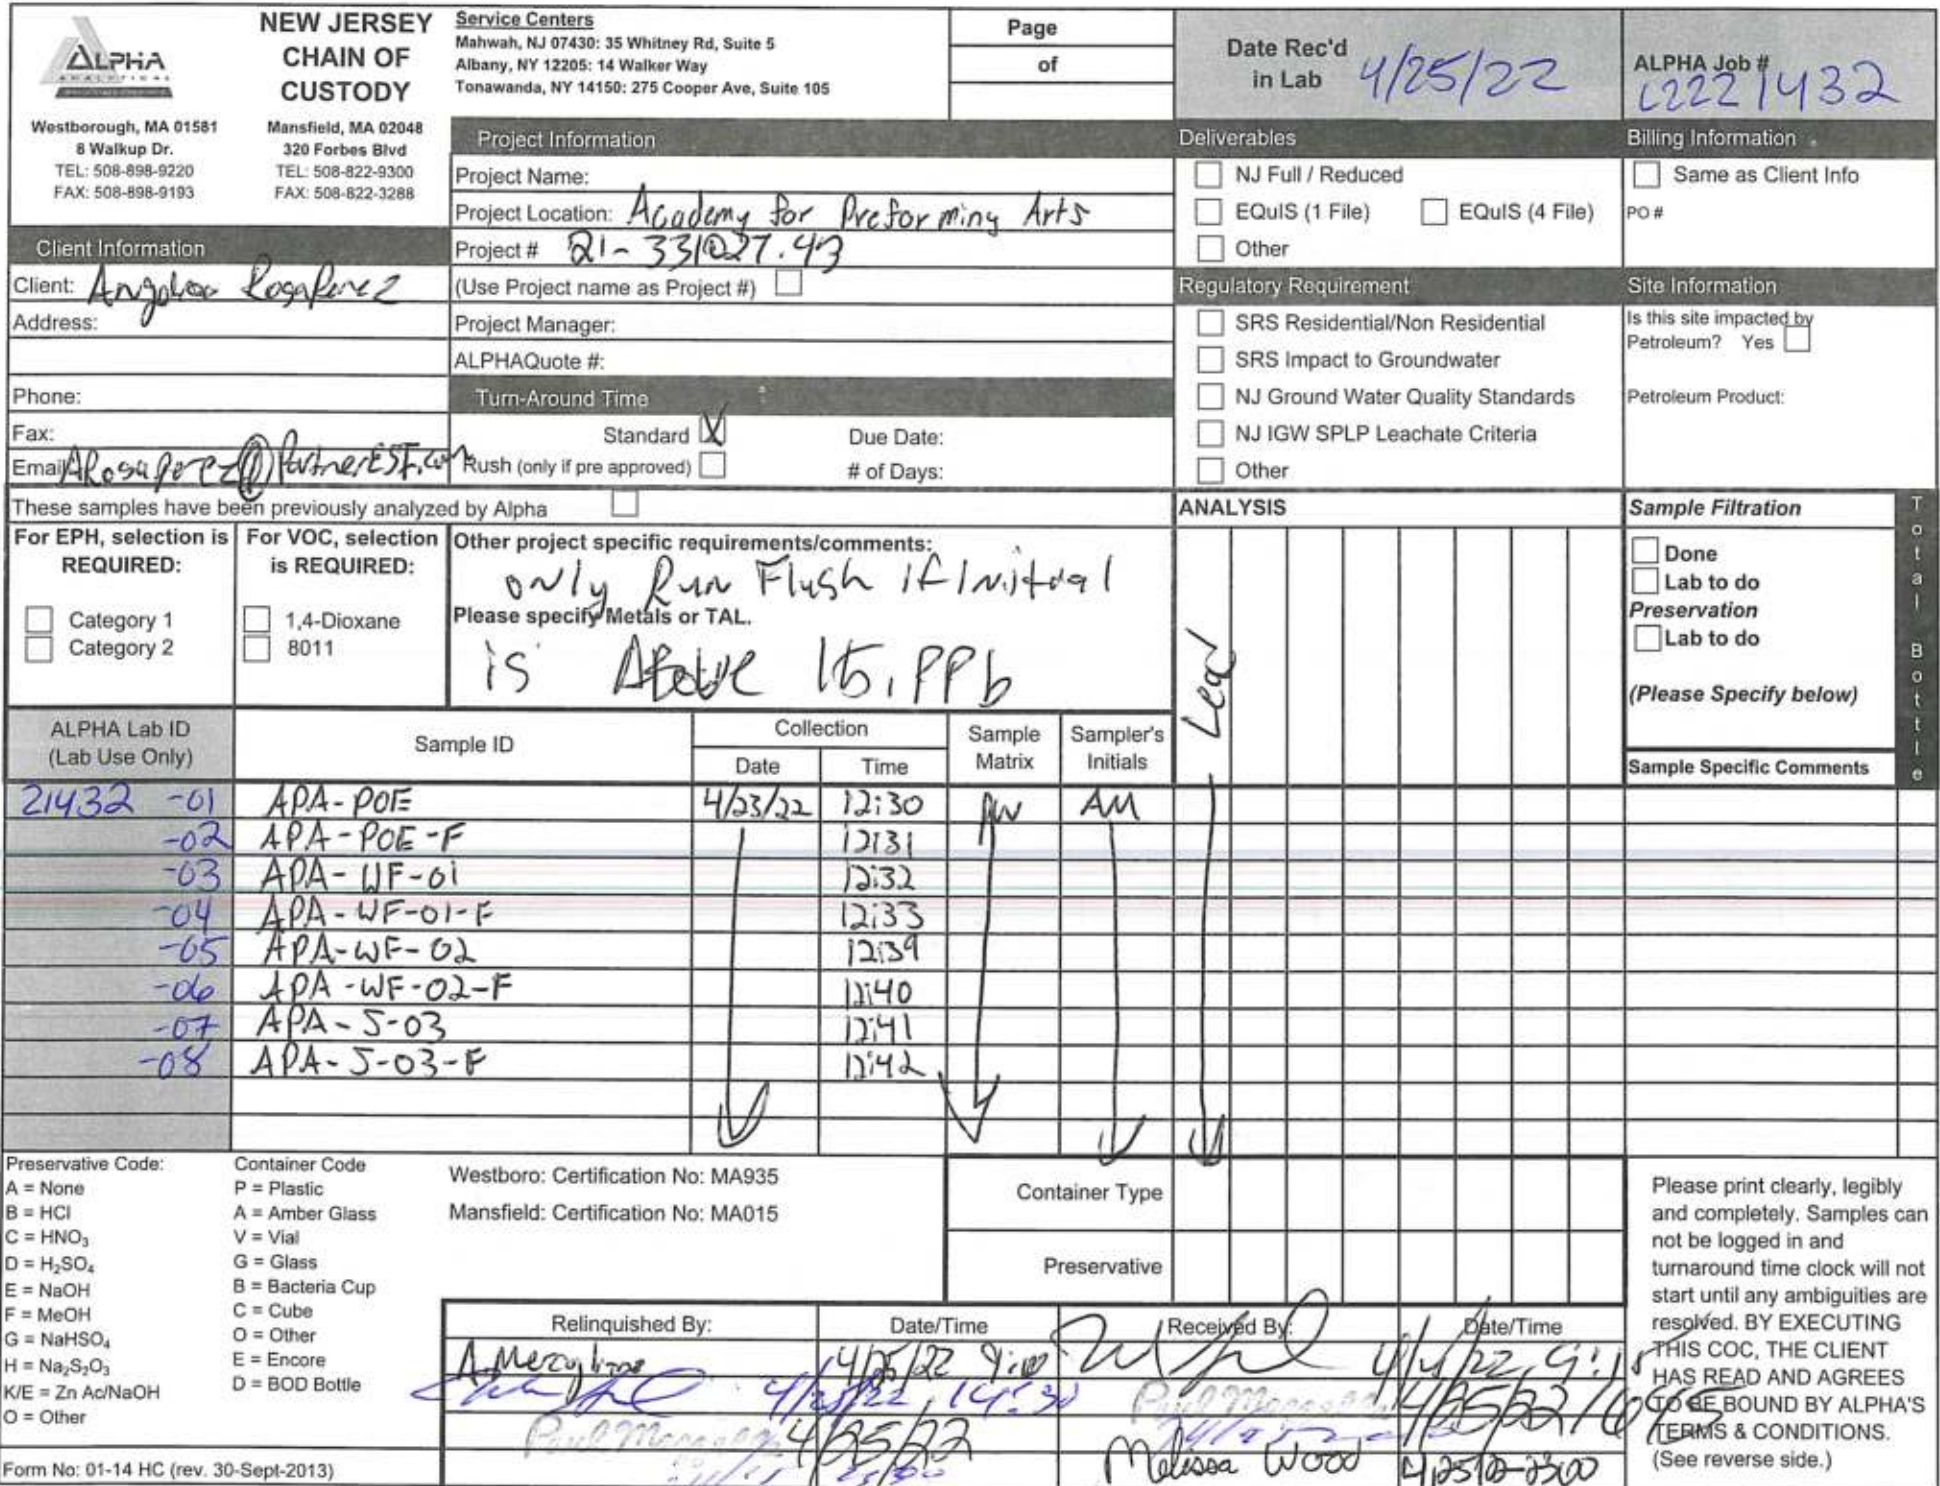 ALPHA
ANALYTICAL
NEW JERSEY
CHAIN OF
CUSTODY
Westborough, MA 01581
8 Walkup Dr.
TEL: 508-898-9220
FAX: 508-898-9193
Mansfield, MA 02048
320 Forbes Blvd
TEL: 508-822-9300
FAX: 508-822-3288
Service Centers
Mahwah, NJ 07430: 35 Whitney Rd, Suite 5
Albany, NY 12205: 14 Walker Way
Tonawanda, NY 14150: 275 Cooper Ave, Suite 105
Page
of
Date Rec'd
in Lab 4/25/22
ALPHA Job #
L2221432
Client Information
Client:
Address:
Phone:
Fax:
Email: ARosaperez@PartnerESI.com
Project Information
Project Name:
Project Location: Academy for Preforming Arts
Project # 21-331027.43
(Use Project name as Project #)
Project Manager:
ALPHAQuote #:
Turn-Around Time
Standard X Due Date:
Rush (only if pre approved) # of Days:
Deliverables
NJ Full / Reduced
EQuIS (1 File) EQuIS (4 File)
Other
Regulatory Requirement
SRS Residential/Non Residential
SRS Impact to Groundwater
NJ Ground Water Quality Standards
NJ IGW SPLP Leachate Criteria
Other
Billing Information
Same as Client Info
PO #
Site Information
Is this site impacted by
Petroleum? Yes
Petroleum Product:
These samples have been previously analyzed by Alpha
For EPH, selection is
REQUIRED:
Category 1
Category 2
For VOC, selection
is REQUIRED:
1,4-Dioxane
8011
Other project specific requirements/comments:
only Run Flush if Initial
Please specify Metals or TAL.
is Above 15.ppb
ANALYSIS
Lead
Sample Filtration
Done
Lab to do
Preservation
Lab to do
(Please Specify below)
Total Bottle
ALPHA Lab ID
(Lab Use Only)
Sample ID
Collection
Date Time
Sample
Matrix
Sampler's
Initials
Sample Specific Comments
21432 -01 APA-POE 4/23/22 12:30 AM
-02 APA-POE-F 12:31
-03 APA-WF-01 12:32
-04 APA-WF-01-F 12:33
-05 APA-WF-02 12:39
-06 APA-WF-02-F 12:40
-07 APA-S-03 12:41
-08 APA-S-03-F 12:42
Preservative Code:
A = None
B = HCl
C = HNO₃
D = H₂SO₄
E = NaOH
F = MeOH
G = NaHSO₄
H = Na₂S₂O₃
K/E = Zn Ac/NaOH
O = Other
Container Code
P = Plastic
A = Amber Glass
V = Vial
G = Glass
B = Bacteria Cup
C = Cube
O = Other
E = Encore
D = BOD Bottle
Westboro: Certification No: MA935
Mansfield: Certification No: MA015
Container Type
Preservative
Relinquished By: Date/Time Received By: Date/Time
4/25/22
4/25/22 14:30
4/25/22 1645
4/25/22
Melissa Wood 4/25/22 2300
Please print clearly, legibly
and completely. Samples can
not be logged in and
turnaround time clock will not
start until any ambiguities are
resolved. BY EXECUTING
THIS COC, THE CLIENT
HAS READ AND AGREES
TO BE BOUND BY ALPHA'S
TERMS & CONDITIONS.
(See reverse side.)
Form No: 01-14 HC (rev. 30-Sept-2013)